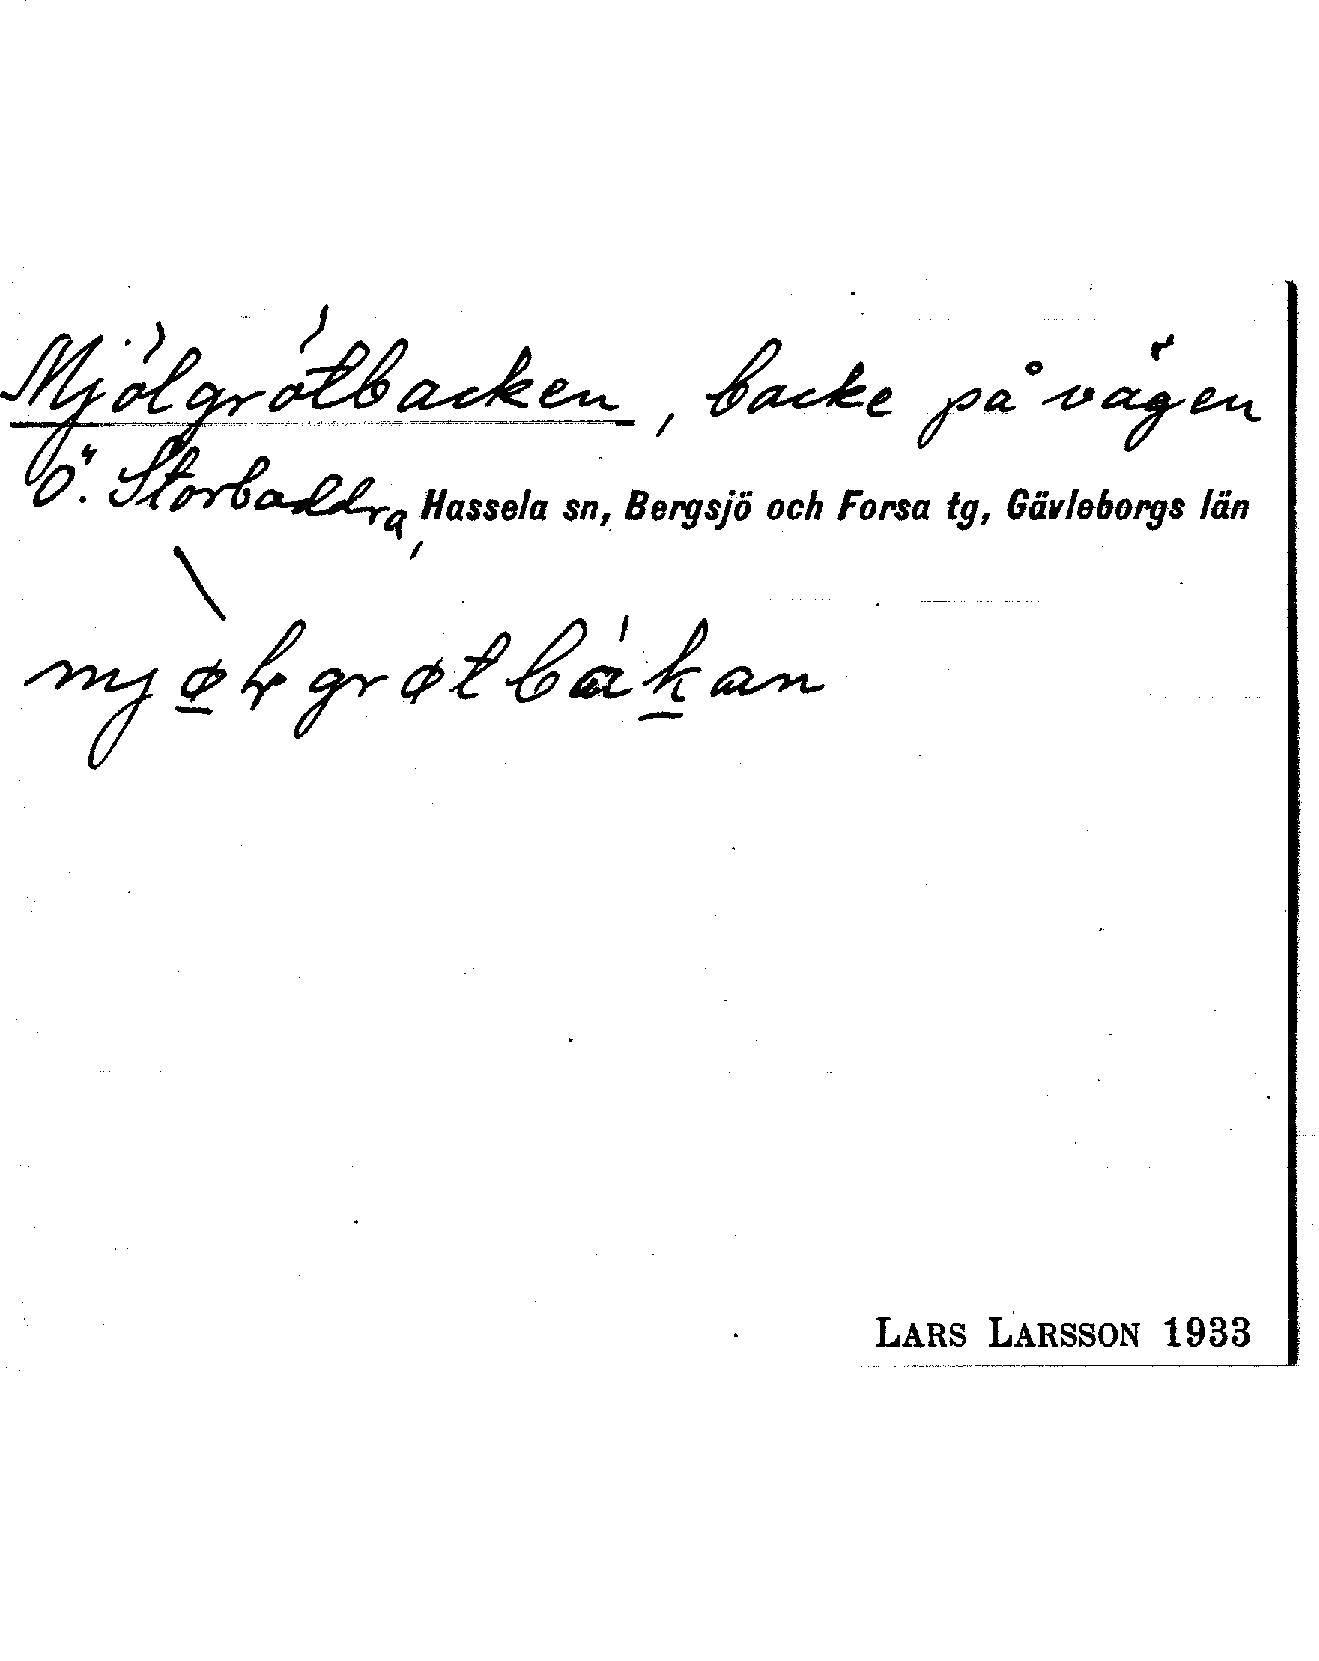 Mjölgrötbacken, backe på vägen
Ö. Storbaddra, Hassela sn, Bergsjö och Forsa tg, Gävleborgs län
LARS LARSSON 1933